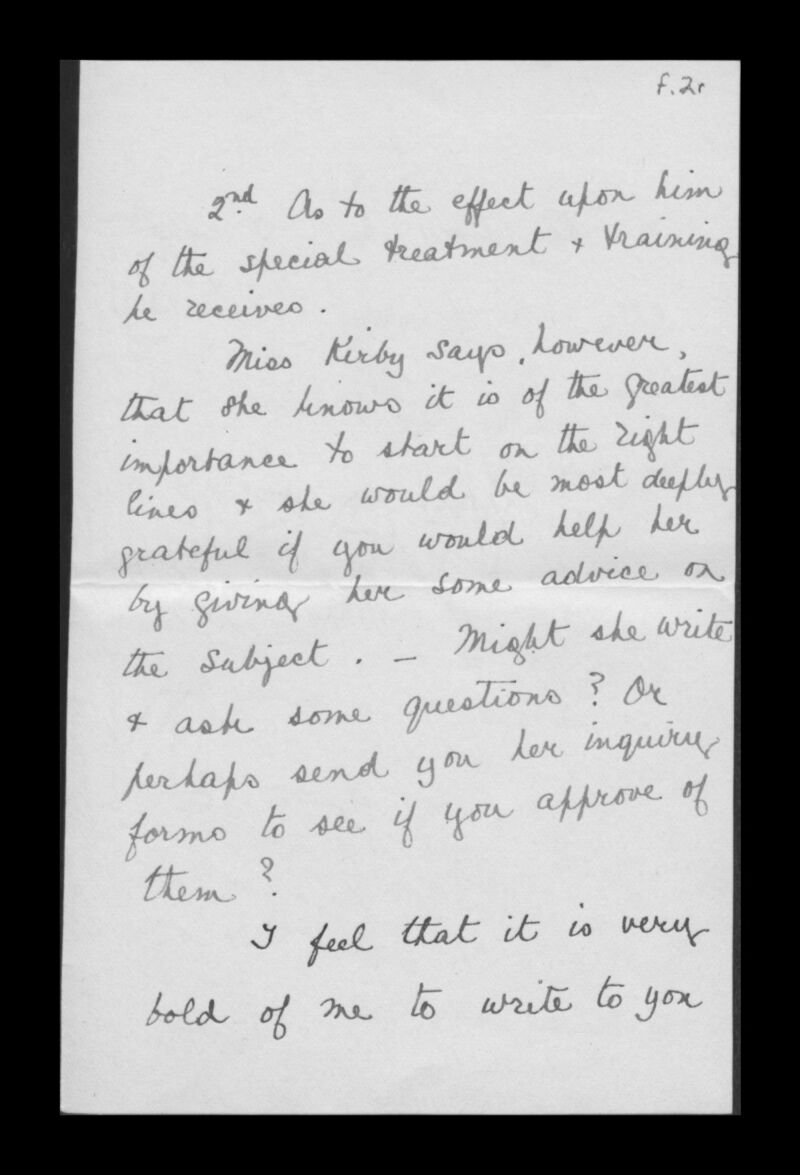 f.2r
2nd As to the effect upon him
of the special treatment & training
he receives.
Miss Kirby says, however,
that she knows it is of the greatest
importance to start on the right
lines & she would be most deeply
grateful if you would help her
by giving her some advice on
the subject. – Might she write
& ask some questions? Or
perhaps send you her inquiry
forms to see if you approve of
them?
I feel that it is very
bold of me to write to you